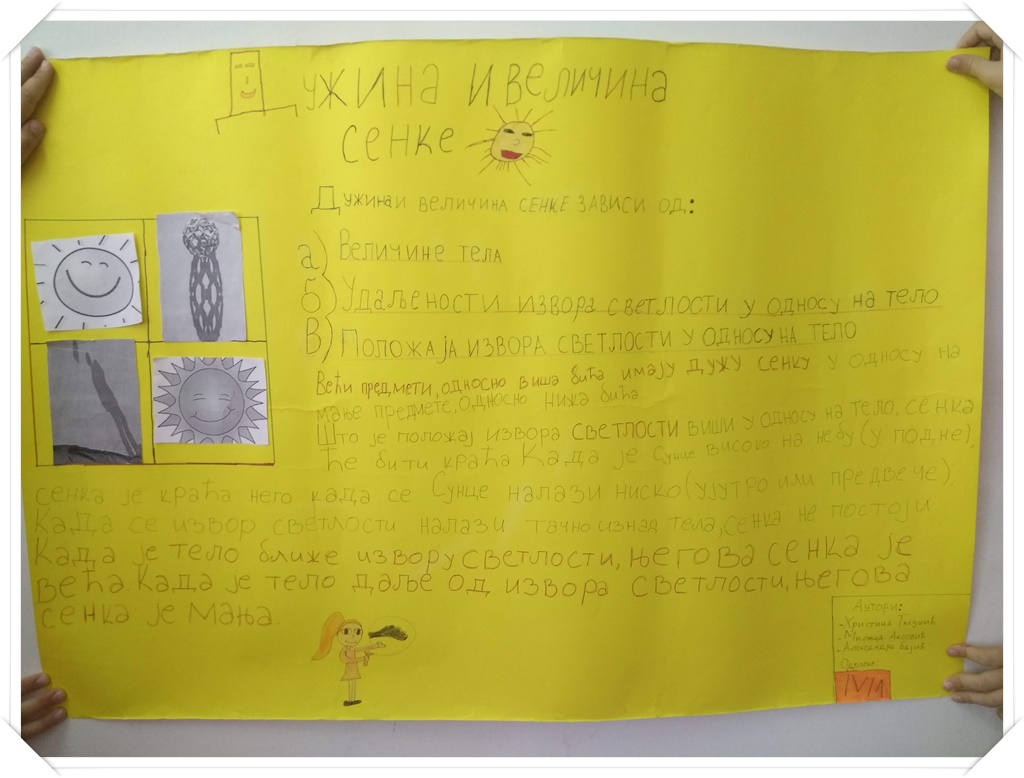 Дужина и величина
сенке
Дужина и величина сенке зависи од:
а) Величине тела
б) Удаљености извора светлости у односу на тело
в) Положаја извора светлости у односу на тело
Већи предмети, односно виша бића имају дужу сенку у односу на
мање предмете, односно нижа бића.
Што је положај извора светлости виши у односу на тело, сенка
ће бити краћа. Када је Сунце високо на небу (у подне),
сенка је краћа него када се Сунце налази ниско (ујутро или предвече).
Када се извор светлости налази тачно изнад тела, сенка не постоји.
Када је тело ближе извору светлости, његова сенка је
већа. Када је тело даље од извора светлости, његова
сенка је мања.
Аутори:
-Христина
-Милица
-Александра Бајић
Одељење:
IV/1